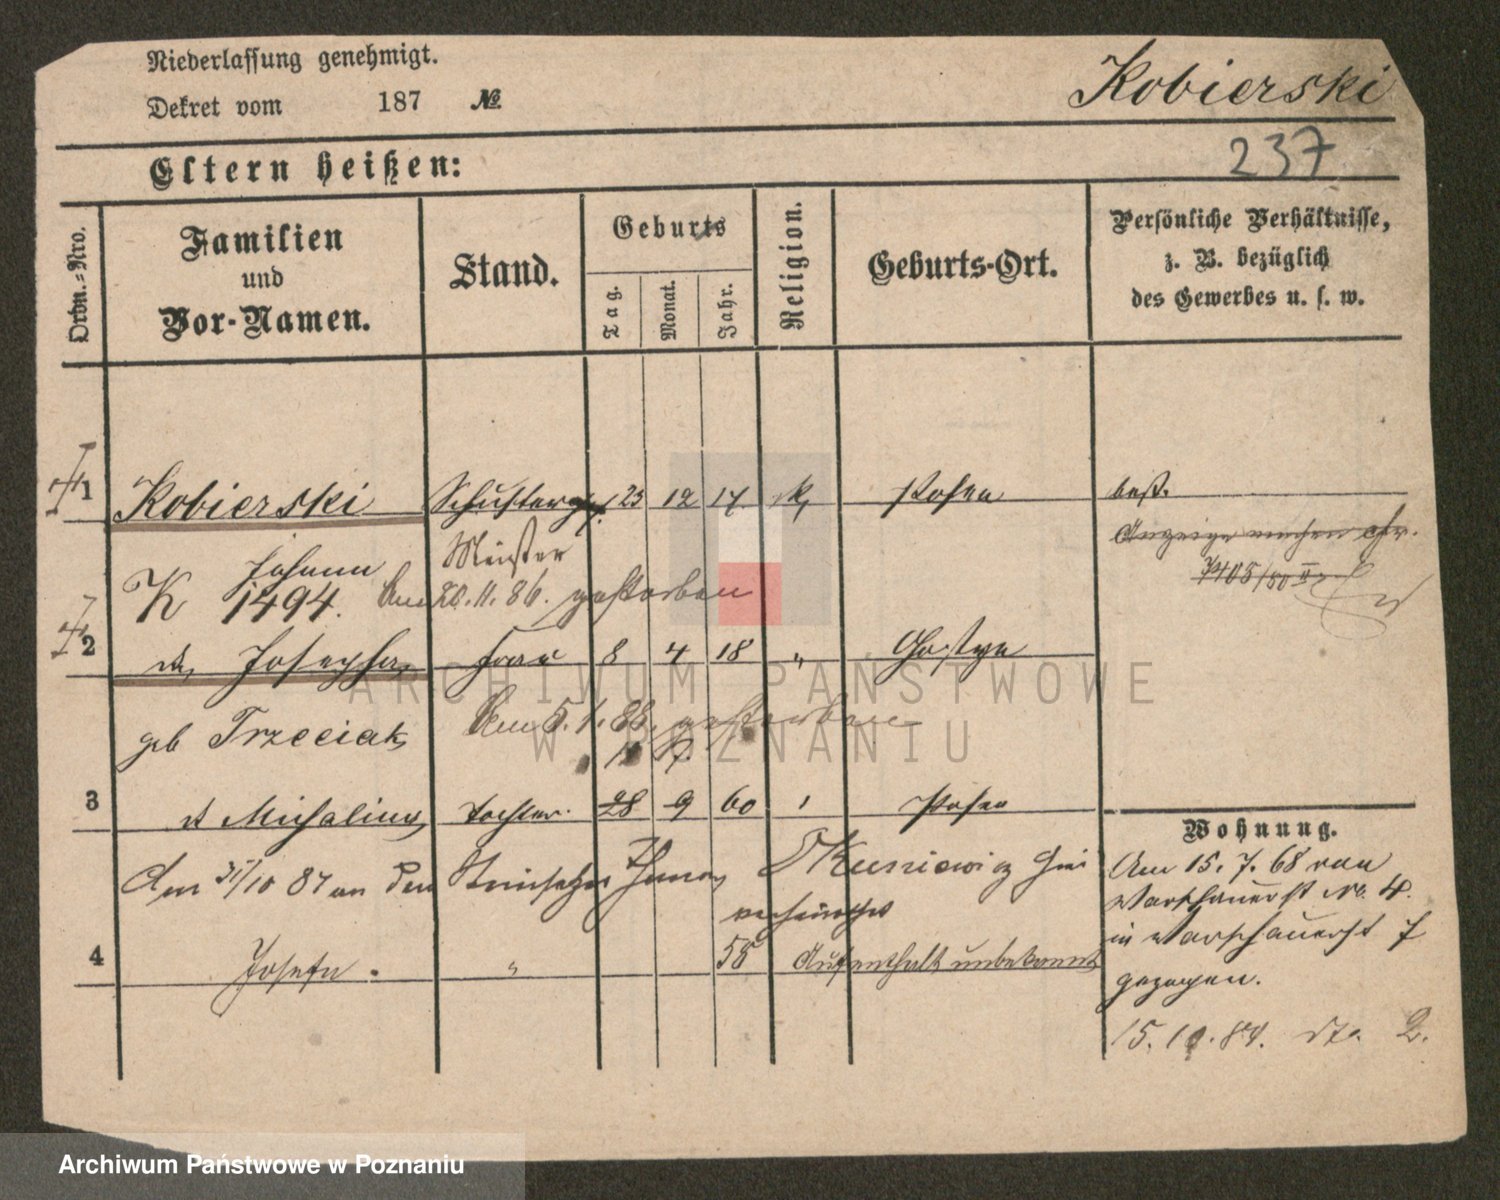 Niederlassung genehmigt.
Dekret vom 187 №
Kobierski
237
Eltern heißen:
Ordn.-Nro.
Familien
und
Vor-Namen.
Stand.
Geburts
Tag.
Monat.
Jahr.
Religion.
Geburts-Ort.
Persönliche Verhältnisse,
z. B. bezüglich
des Gewerbes u. s. w.
1 Kobierski Schuster 23 12 17. k. Posen best.
Johann Meister Anzeige machen cfr.
K 1494. Am 20.11.86. gestorben
2 Josepha Frau 8 4 18 " Gostyn
geb Trzeciak Am 5.1.88. gestorben
3 Michalina Tochter. 28 9 60 Posen
Am 31/10 87 an den
verheirathet
4 Josefa. " 58 Aufenthalt unbekannt
Wohnung.
Am 15. 7. 68 von
Warschauerst No. 4.
in Warschauerst 7
gezogen.
15. 10. 84. dto. 2.
ARCHIWUM PAŃSTWOWE
W POZNANIU
Archiwum Państwowe w Poznaniu